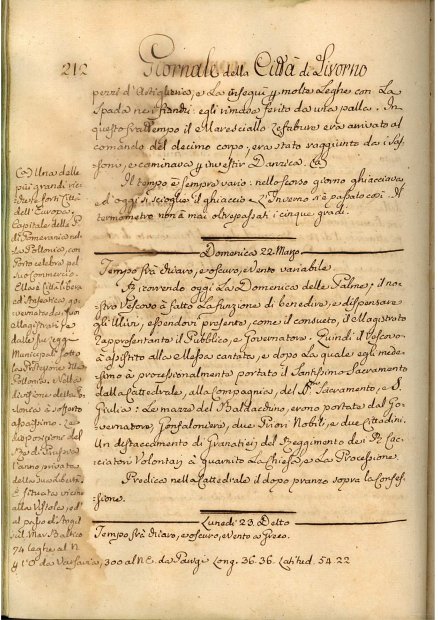 212
Giornale della Città di Livorno
pezzi d'Artiglieria, e La inseguì p molte Leghe con La
Spada nei fianchi: egli rimase ferito da una palla. In
questo frattempo il Maresciallo Lefebure era arrivato al
comando del decimo corpo, era stato raggiunto dai Sas-
soni, e cominciava p investir Danzica. (a)
Il tempo è sempre vario: nello scorso giorno ghiacciava
e d'oggi si scioglie il ghiaccio. L'Inverno s'è passato così. Il
termometro non à mai oltrepassati i cinque gradi.
Domenica 22. Marzo
Tempo frà chiaro, e oscuro, e Vento variabile.
Ricorrendo oggi La Domenica delle Palme, il no-
stro Vescovo à fatto La funzione di benedire, e dispensare
gli Ulivi, essendovi presente, come il consueto, il Magistrato
rappresentante il Pubblico, e Governatore. Quindi il Vescovo
à assistito alla Messa cantata, e dopo La quale egli mede-
simo à processionalmente portato il Santissimo Sacramento
dalla Cattedrale, alla Compagnia, del SS. Sacramento, e S.
Giulia: Le mazze del Baldacchino, erono portate dal Go-
vernatore, Gonfaloniere, due Priori Nobili, e due Cittadini.
Un distaccamento di Granatieri del Reggimento dei R. Cac-
ciatori Volontarj à guarnito La Chiesa, e La Processione.
Predica nella Cattedrale il dopo pranzo sopra la Confes-
sione.
Lunedi 23. Detto
Tempo frà chiaro, e oscuro, e Vento a Greco.
(a) Una delle
più grandi, ric-
che, e forti Città
dell'Europa;
Capitale della
Pomerania
La Pollonia, con
Porto celebre pel
suo Commercio.
Ella è Città libera
ed Anseatica, go-
vernata dei suoi
Magistrati, e
dalle sue Leggi
Municipali sotto
La Protezione
Pollonia. Nella
divisione della Po-
lonia à sofferto
assaissimo.
disposizione del
Rè di Prussia
l'anno privata
della sua Libertà.
È situata vicino
alla Vistola, ed
al
sul Mar Baltico
74 leghe al N
p l'O da Varsavia, 300 al N E. da Parigi Long. 36. 36. Latitud. 54. 22